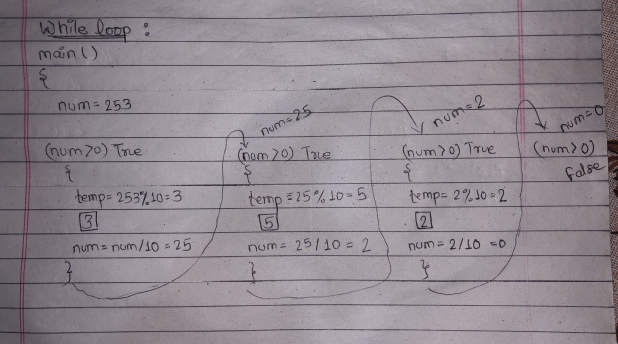 While loop :
main()
{
num = 253
(num>0) True
{
temp = 253%10=3
3
num = num/10 = 25
}
num=25
(num>0) True
{
temp = 25%10 = 5
5
num = 25/10 = 2
}
num=2
(num>0) True
{
temp = 2%10=2
2
num = 2/10 =0
}
num=0
(num>0)
false